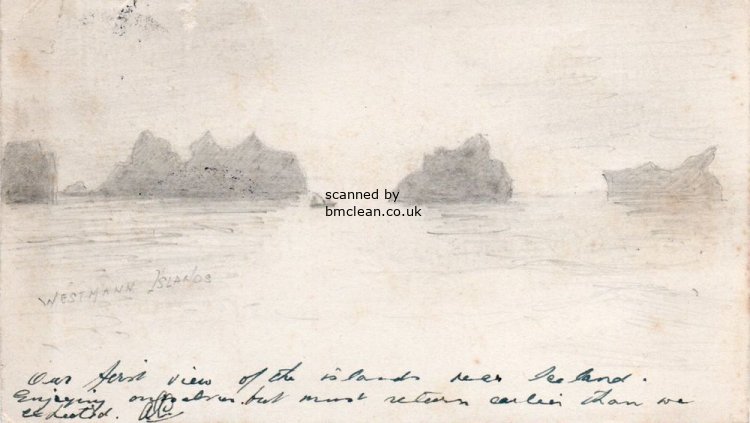 scanned by
bmclean.co.uk
WESTMANN ISLANDS
Our first view of the islands near Iceland.
Enjoying ourselves but must return earlier than we
expected.